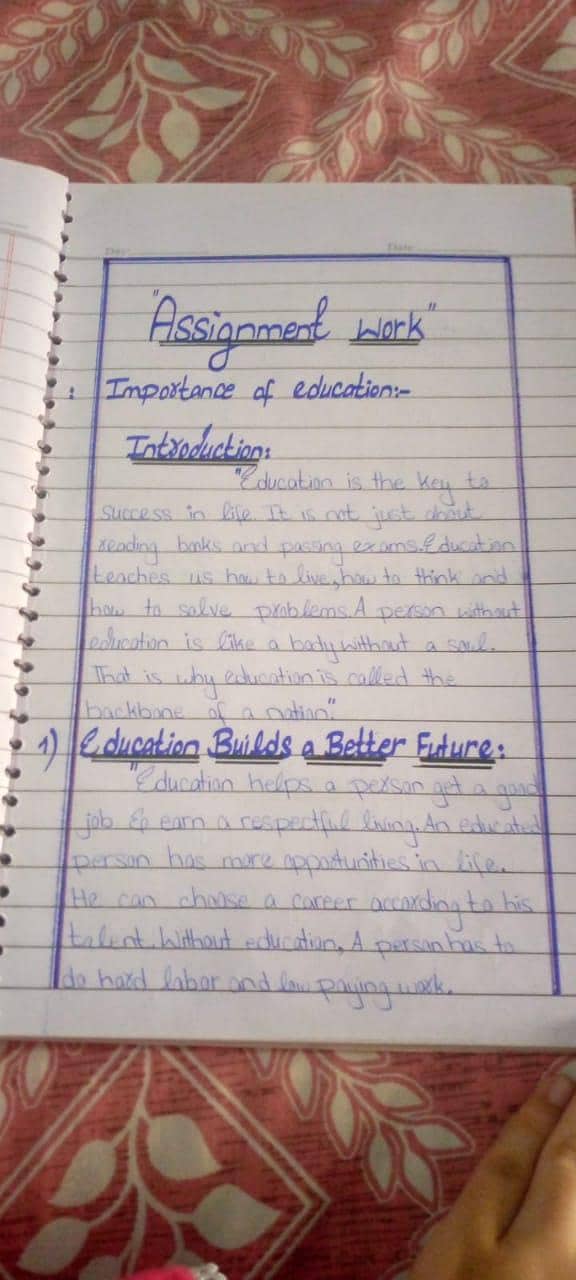 Day: Date:
"Assignment work"
: Importance of education:-
Introduction:
"Education is the key to
success in life. It is not just about
reading books and passing exams. Education
teaches us how to live, how to think and
how to solve problems. A person without
education is like a body without a soul.
That is why education is called the
backbone of a nation."
1) Education Builds a Better Future:
"Education helps a person get a good
job & earn a respectful living. An educated
person has more opportunities in life.
He can choose a career according to his
talent. Without education, A person has to
do hard labor and low paying work.